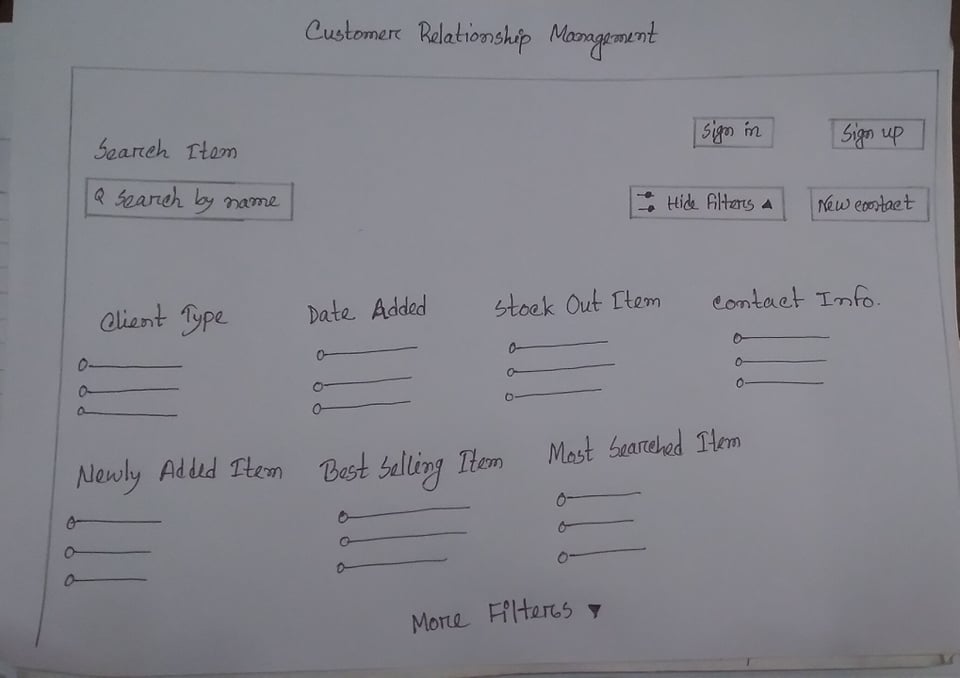 Customer Relationship Management
Sign in
Sign up
Search Item
Search by name
Hide Filters ▲
New contact
Client Type
Date Added
Stock Out Item
Contact Info.
Newly Added Item
Best Selling Item
Most Searched Item
More Filters ▼